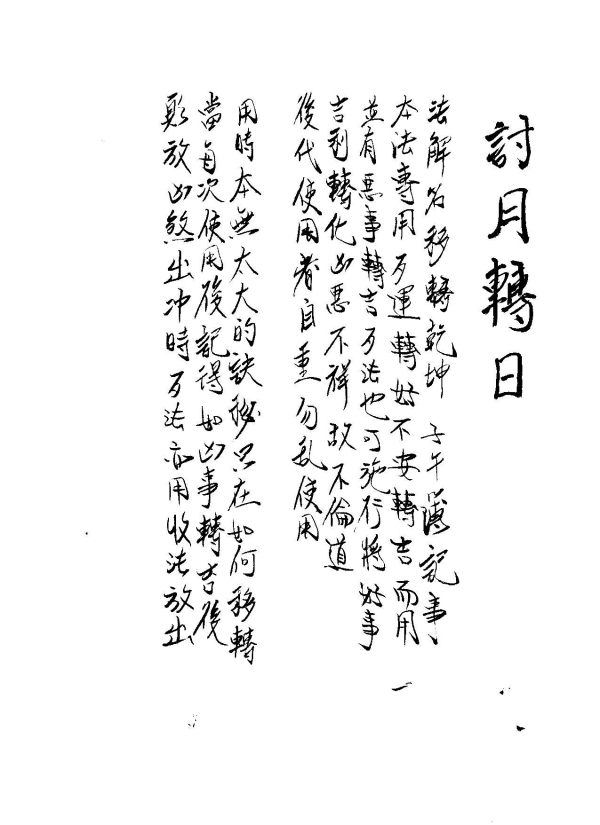 討月轉日
法解名移轉乾坤 子午簿記事
本法專用歹運轉好不安轉吉而用
並有惡事轉吉歹法也可施行將好事
吉利轉化凶惡不祥故不倫道
後代使用者自重勿亂使用
用時本無太大的訣秘只在如何移轉
當每次使用後記得如凶事轉吉後
放凶煞出冲時歹法亦用收法放出